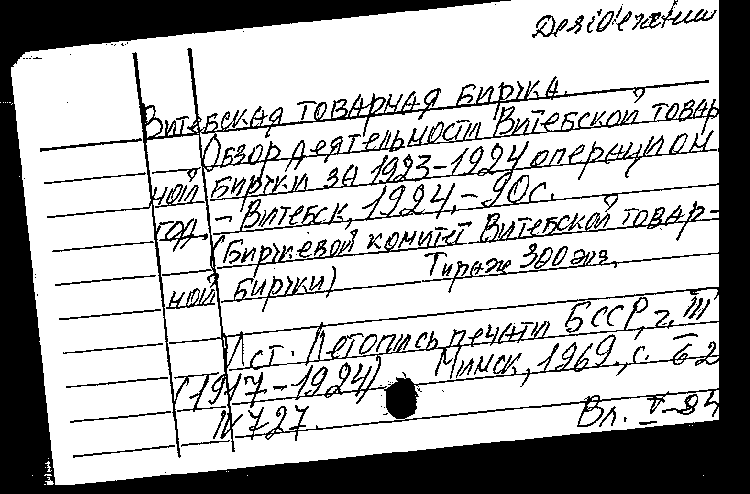 Desiderata
Витебская товарная биржа.
Обзор деятельности Витебской товар
ной биржи за 1923-1924 операцион.
год. - Витебск, 1924. - 90с.
(Биржевой комитет Витебской товар-
ной биржи) Тираж 300 экз.
Ист. Летопись печати БССР, ч. III
(1917-1924) Минск, 1969., с. 62
N 727.
Вл. V-84